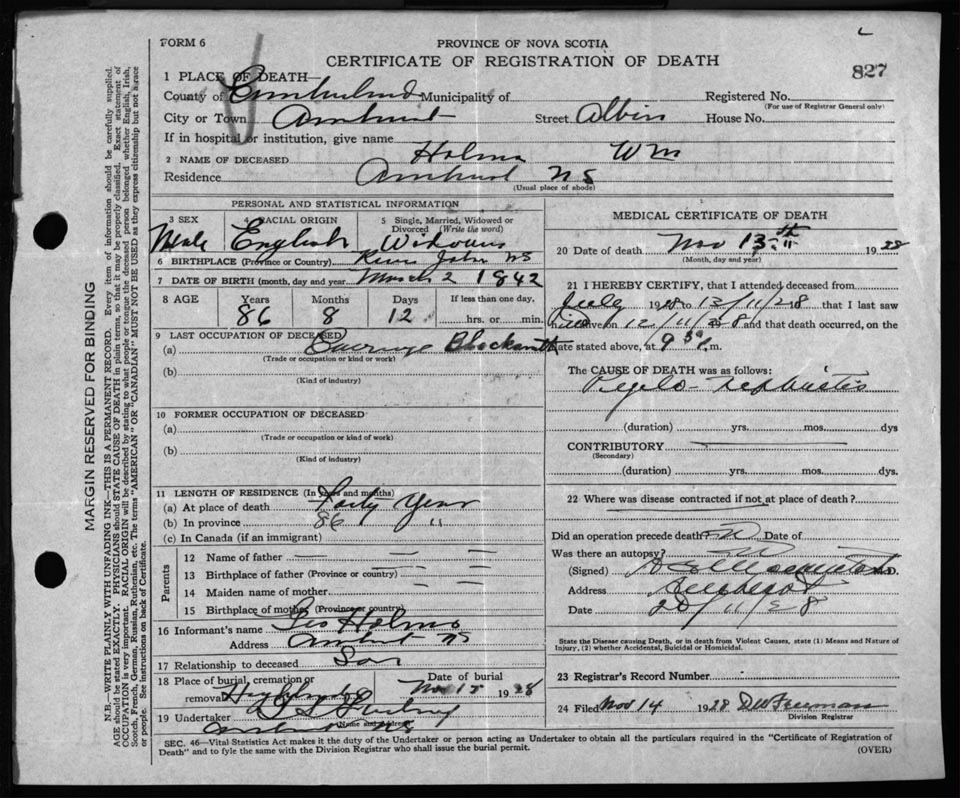 FORM 6
PROVINCE OF NOVA SCOTIA
CERTIFICATE OF REGISTRATION OF DEATH
827
1 PLACE OF DEATH—
County of Cumberland Municipality of Registered No.
(For use of Registrar General only)
City or Town Amherst Street Albion House No.
If in hospital or institution, give name
2 NAME OF DECEASED Holms Wm
Residence Amherst NS
(Usual place of abode)
PERSONAL AND STATISTICAL INFORMATION
3 SEX 4 RACIAL ORIGIN 5 Single, Married, Widowed or Divorced (Write the word)
Male English Widower
6 BIRTHPLACE (Province or Country) River John NS
7 DATE OF BIRTH (month, day and year) March 2 1842
8 AGE Years Months Days If less than one day,
86 8 12 hrs. or min.
9 LAST OCCUPATION OF DECEASED
(a) Carriage Blacksmith
(Trade or occupation or kind of work)
(b)
(Kind of industry)
10 FORMER OCCUPATION OF DECEASED
(a)
(Trade or occupation or kind of work)
(b)
(Kind of industry)
11 LENGTH OF RESIDENCE (In years and months)
(a) At place of death Forty Year
(b) In province 86 "
(c) In Canada (if an immigrant)
Parents
12 Name of father
13 Birthplace of father (Province or country)
14 Maiden name of mother
15 Birthplace of mother (Province or country)
16 Informant's name Geo Holms
Address Amherst NS
17 Relationship to deceased Son
18 Place of burial, cremation or removal Highland
Date of burial
Nov 15 1928
19 Undertaker
(Name and Address)
Amherst NS
MEDICAL CERTIFICATE OF DEATH
20 Date of death Nov 13th 1928
(Month, day and year)
21 I HEREBY CERTIFY, that I attended deceased from
July 1928 to 13/11/28 that I last saw
him alive on 12/11/28 and that death occurred, on the
date stated above, at 9 30 P.m.
The CAUSE OF DEATH was as follows:
Pyelo-nephritis
(duration) yrs. mos. dys
CONTRIBUTORY
(Secondary)
(duration) yrs. mos. dys.
22 Where was disease contracted if not at place of death?
Did an operation precede death? No Date of
Was there an autopsy? No
(Signed) M.D.
Address Amherst
Date 20/11/28
State the Disease causing Death, or in death from Violent Causes, state (1) Means and Nature of
Injury, (2) whether Accidental, Suicidal or Homicidal.
23 Registrar's Record Number
24 Filed Nov 14 1928 Freeman
Division Registrar
SEC. 46—Vital Statistics Act makes it the duty of the Undertaker or person acting as Undertaker to obtain all the particulars required in the "Certificate of Registration of
Death" and to fyle the same with the Division Registrar who shall issue the burial permit.
(OVER)
MARGIN RESERVED FOR BINDING
N.B.—WRITE PLAINLY WITH UNFADING INK—THIS IS A PERMANENT RECORD. Every item of information should be carefully supplied.
AGE should be stated EXACTLY. PHYSICIANS should STATE CAUSE OF DEATH in plain terms, so that it may be properly classified. Exact statement of
OCCUPATION is very important. RACIAL ORIGIN will be described by stating to what people or tongue the deceased person belonged whether English, Irish,
Scotch, French, German, Russian, Ruthenian, etc. The terms "AMERICAN" OR "CANADIAN" MUST NOT BE USED as they express citizenship but not a race
or people. See instructions on back of Certificate.